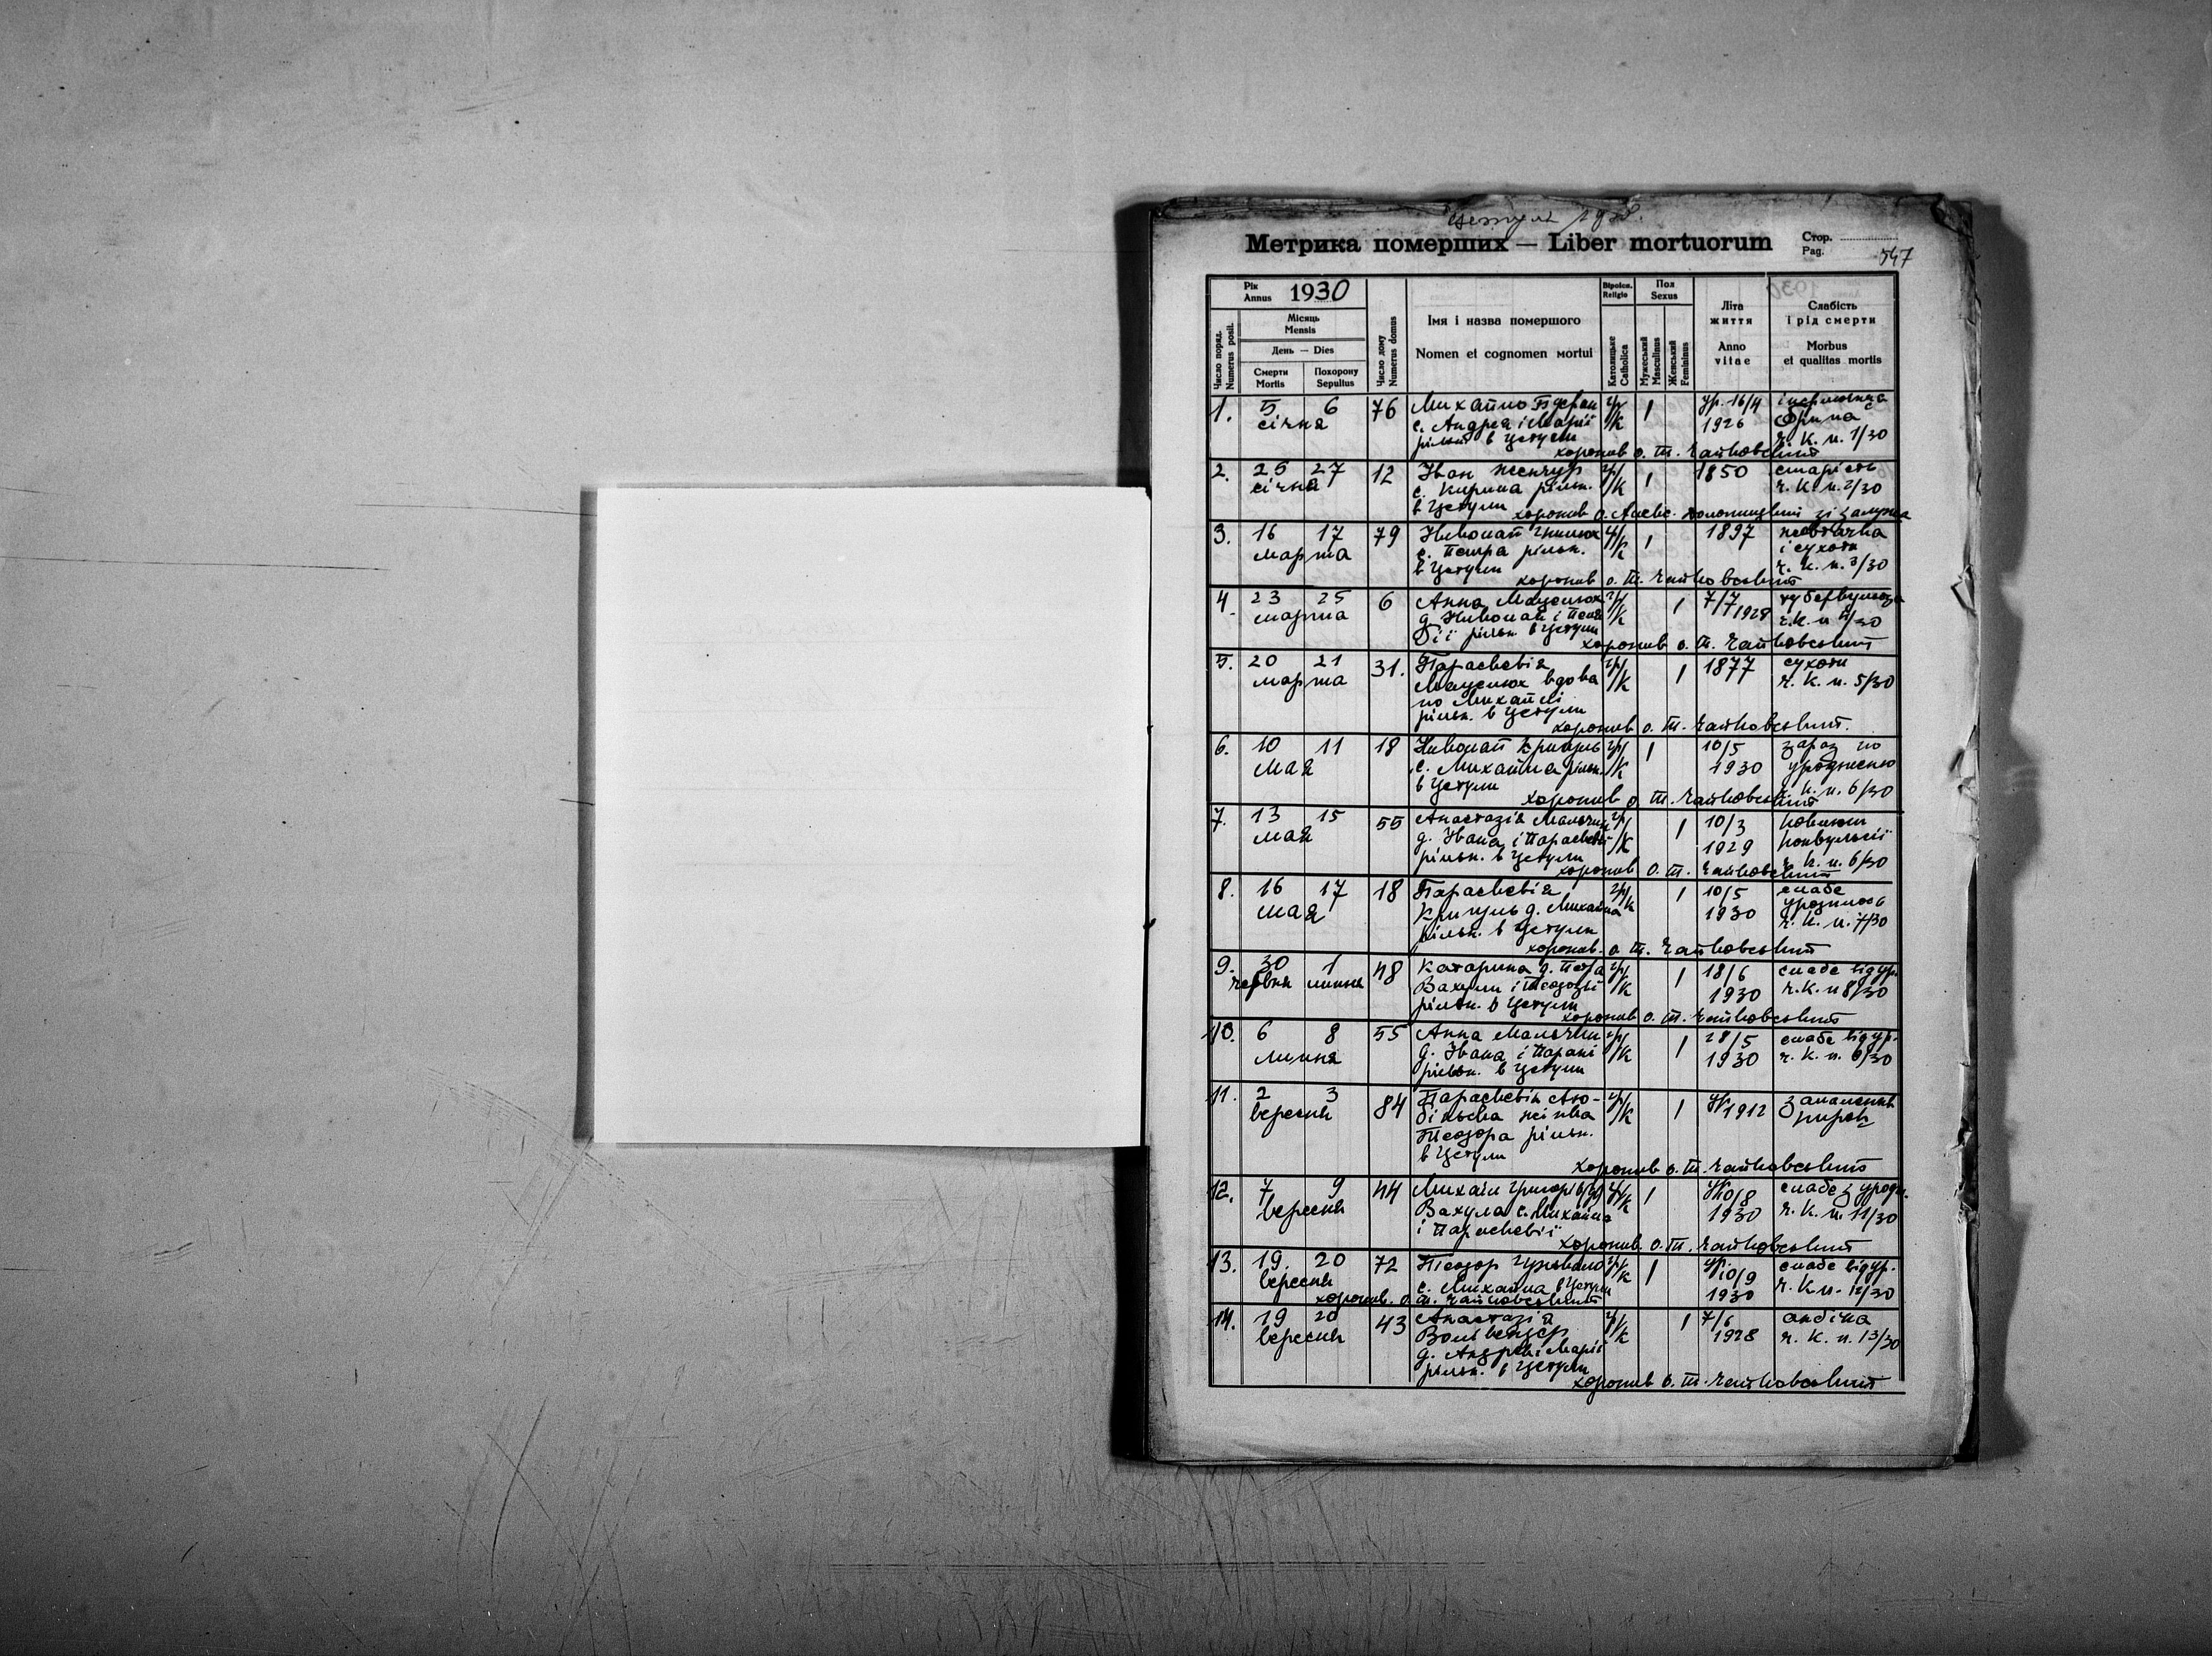 Цетуля
Метрика померших — Liber mortuorum
Стор.
Pag.
547
Рік
Annus 1930
Місяць
Mensis
День — Dies
Число поряд.
Numerus posit.
Смерти
Mortis
Похорону
Sepultus
Число дому
Numerus domus
Імя і назва помершого
Nomen et cognomen mortui
Віроісп.
Religio
Католицьке
Catholica
Пол
Sexus
Мужеський
Masculinus
Женський
Femininus
Літа
життя
Anno
vitae
Слабість
і рід смерти
Morbus
et qualitas mortis
1. 5 6 76 Михайло гр/к 1 ур. 16/4
січня с. Андрея і Марії 1926
рільн. в Цетули ч. к. п. 1/30
хоронив о. Т. Чайковський
2. 26 27 12 Іван гр/к 1 1850 старість
січня с. Кирила рільн. ч. к. п. 2/30
в Цетули хоронив о. зі Залужа
3. 16 17 79 Николай гр/к 1 1897
марта с. Петра рільн. і сухоти
в Цетули ч. к. п. 3/30
хоронив о. Т. Чайковський
4. 23 25 6 Анна Мацелюх гр/к 1 7/7 1928
марта д. Николая і рільн. в Цетули ч. к. п. 4/30
хоронив о. Т. Чайковський
5. 20 21 31. Параскевія гр/к 1 1877 сухоти
марта Мацелюх вдова ч. к. п. 5/30
по Михайлі
рільн. в Цетули
хоронив о. Т. Чайковський.
6. 10 11 18 Николай гр/к 1 10/5 зараз по
мая с. Михайла рільн. 1930 уродженю
в Цетули ч. к. п. 6/30
хоронив о. Т. Чайковський
7. 13 15 55 Анастазія гр/к 1 10/3
мая д. Івана і Параскевії 1929 конвульсії
рільн. в Цетули ч. к. п. 6/30
хоронив о. Т. Чайковський
8. 16 17 18 Параскевія гр/к 1 10/5 слабе
мая д. Михайла 1930 уродилось
рільн. в Цетули ч. к. п. 7/30
хоронив о. Т. Чайковський
9. 30 1 48 Катарина д. Петра гр/к 1 18/6 слабе від ур.
червня липня Вахули і Теодозії 1930 ч. к. п 8/30
рільн. в Цетули
хоронив о. Т. Чайковський
10. 6 8 55 Анна гр/к 1 28/5 слабе від ур.
липня д. Івана і Парані 1930 ч. к. п. 9/30
рільн. в Цетули
11. 2 3 84 Параскевія гр/к 1 1912 запаленє
вересня жінка
Теодора рільн.
в Цетули
хоронив о. Т. Чайковський
12. 7 9 44 Михаїл Григорій гр/к 1 10/8 слабе з урод.
вересня Вахула с. Михайла 1930 ч. к. п. 11/30
і Параскевії
хоронив о. Т. Чайковський
13. 19 20 72 Теодор гр/к 1 10/9 слабе від ур.
вересня с. Михайла в Цетули 1930 ч. к. п. 12/30
хоронив о. Т. Чайковський
14. 19 20 43 Анастазія гр/к 1 7/6
вересня 1928 ч. к. п. 13/30
д. Андрея і Марії
рільн. в Цетули
хоронив о. Т. Чайковський